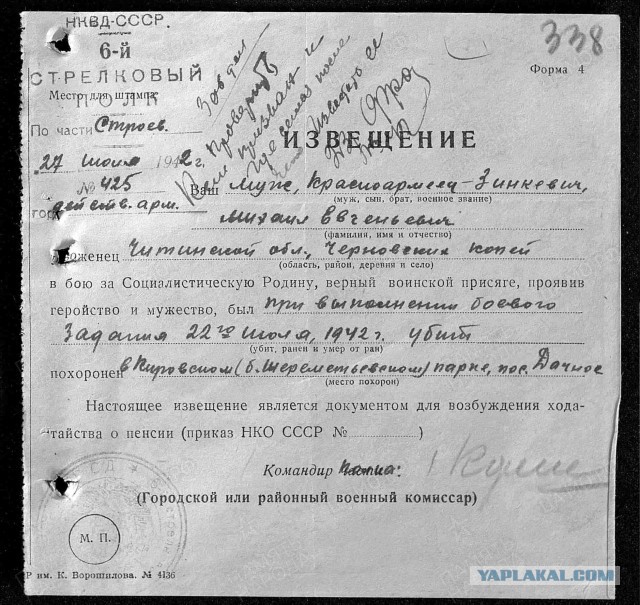 НКВД-СССР.
6-й
СТРЕЛКОВЫЙ
ПОЛК
338
Форма 4
Место для штампа
По части Строев.
ИЗВЕЩЕНИЕ
27 июля 1942 г.
№ 425
действ. арм.
Ваш муж, Красноармеец-Зинкевич,
(муж, сын, брат, военное звание)
гор
Михаил Евгеньевич
(фамилия, имя и отчество)
роженец Читинской обл., Черновских копей
(область, район, деревня и село)
в бою за Социалистическую Родину, верный воинской присяге, проявив
геройство и мужество, был при выполнении боевого
задания 22го июля, 1942 г. убит
(убит, ранен и умер от ран)
похоронен в Кировском (б. Шереметьевском) парке, пос. Дачное
(место похорон)
Настоящее извещение является документом для возбуждения хода-
тайства о пенсии (приказ НКО СССР № )
Командир полка:
(Городской или районный военный комиссар)
М. П.
Р им. К. Ворошилова. № 4136
YAPLAKAL.COM